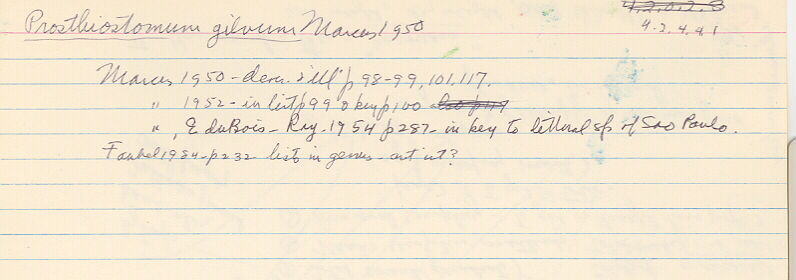 4.2.0.2.8
Prosthiostomum gilvum Marcus 1950
4.2.4.41
Marcus 1950 - descr. & ill p 98-99, 101, 117.
" 1952 - in list p 99 & key p 100 also p 117
" , E duBois - Ray. 1954 p 287 - in key to littoral sp of Sao Paulo.
Faubel 1984 - p 232 list in genus -